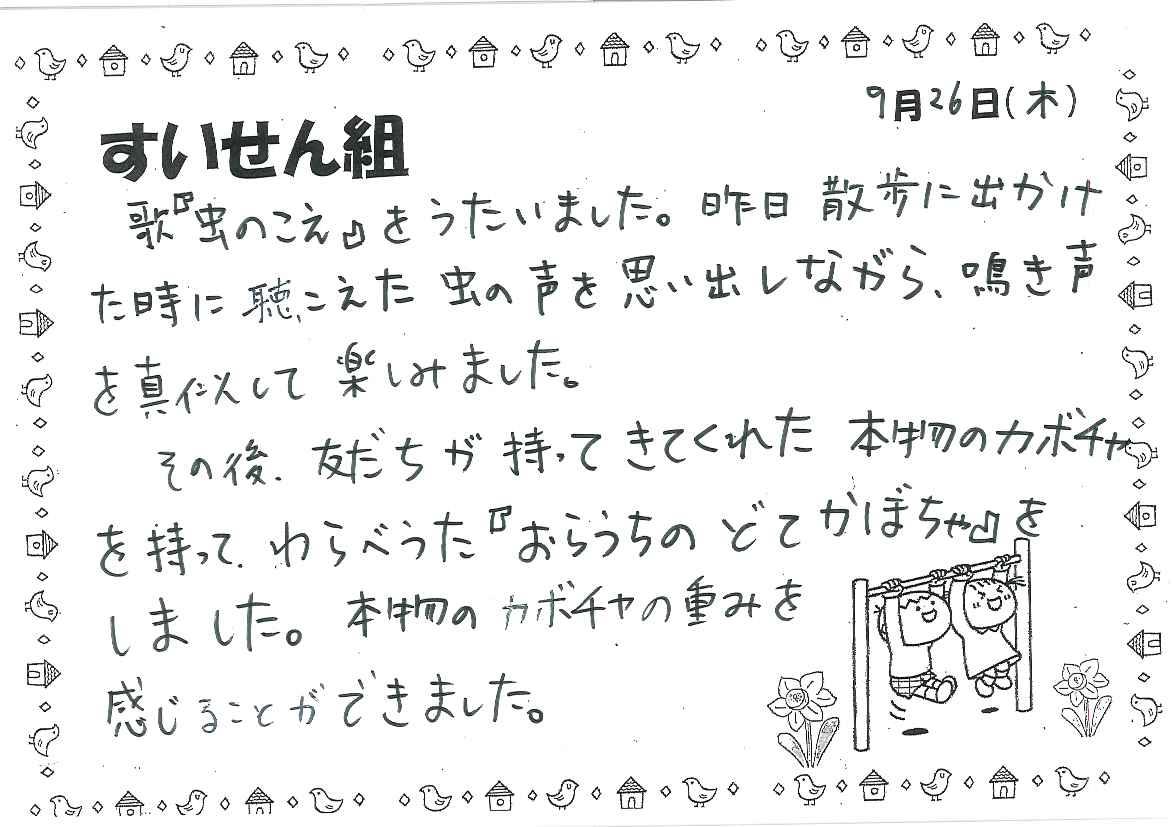 9月26日(木)
すいせん組
歌『虫のこえ』をうたいました。昨日散歩に出かけ
た時に聴こえた虫の声を思い出しながら、鳴き声
を真似して楽しみました。
その後、友だちが持ってきてくれた本物のカボチャ
を持って、わらべうた『おらうちのどてかぼちゃ』を
しました。本物のカボチャの重みを
感じることができました。